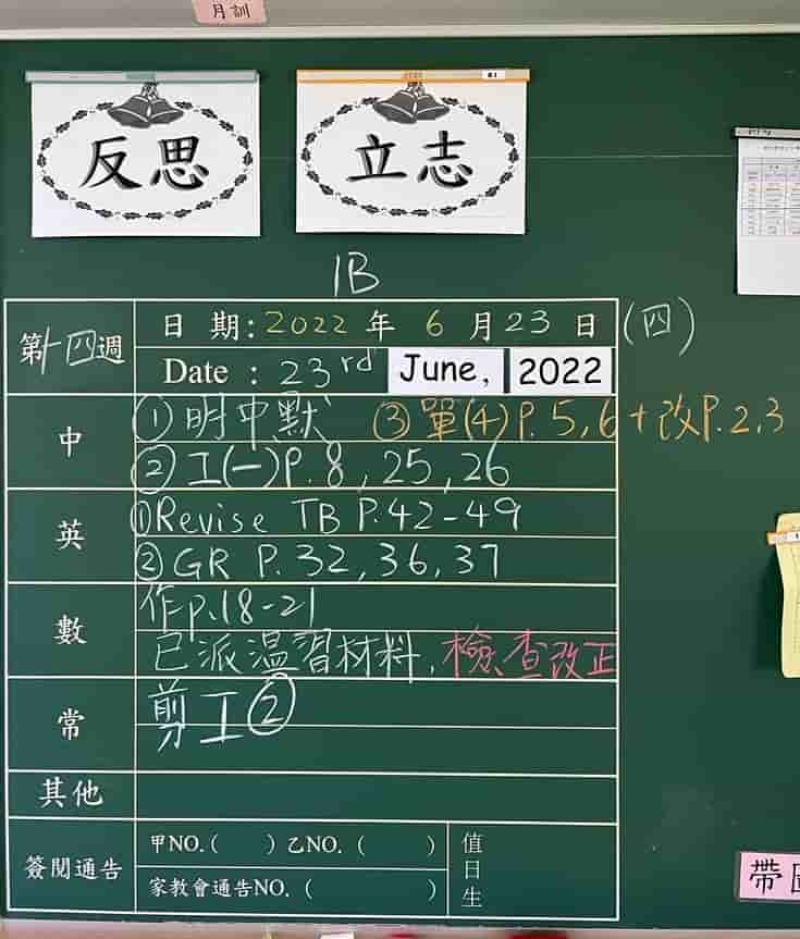 月訓
反思
立志
1B
第十四週
日 期:2022 年 6 月 23 日 (四)
Date : 23rd June, 2022
中
①明中默 ③單(4)P.5,6+改P.2,3
②工(一)P.8,25,26
英
①Revise TB P.42-49
②GR P.32,36,37
數
作p.18-21
已派溫習材料,檢查改正
常
剪工②
其他
簽閱通告
甲NO.( ) 乙NO. ( )
家教會通告NO. ( )
值日生
帶